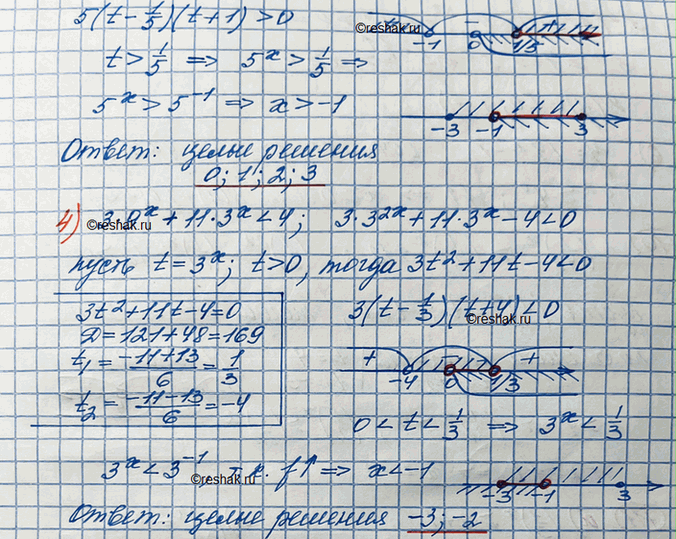 5(t - 1/5)(t + 1) > 0
+ -1 - 0 1/5 +
t > 1/5 ⇒ 5^x > 1/5 ⇒
©reshak.ru
5^x > 5^-1 ⇒ x > -1
-3 -1 3
Ответ: целые решения
0; 1; 2; 3
4) 3·9^x + 11·3^x < 4; 3·3^2x + 11·3^x - 4 < 0
©reshak.ru
пусть t = 3^x; t > 0, тогда 3t² + 11t - 4 < 0
3t² + 11t - 4 = 0
D = 121 + 48 = 169
t₁ = (-11+13)/6 = 1/3
t₂ = (-11-13)/6 = -4
3(t - 1/3)(t + 4) < 0
©reshak.ru
+ -4 - 0 1/3 +
0 < t < 1/3 ⇒ 3^x < 1/3
3^x < 3^-1, т.к. f↑ ⇒ x < -1
©reshak.ru
-3 -1 3
Ответ: целые решения -3; -2